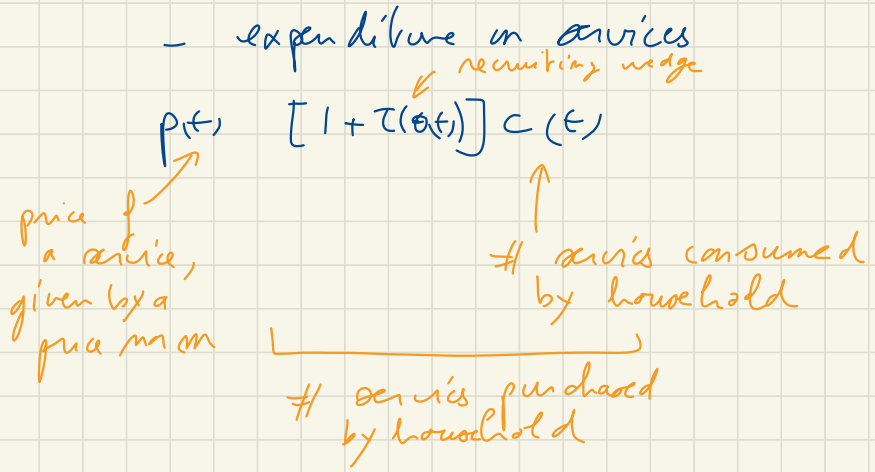 - expenditure on services
recruiting wedge
p(t) [1 + τ(θ(t))] c(t)
price of
a service,
given by a
price norm
# services consumed
by household
# services purchased
by household